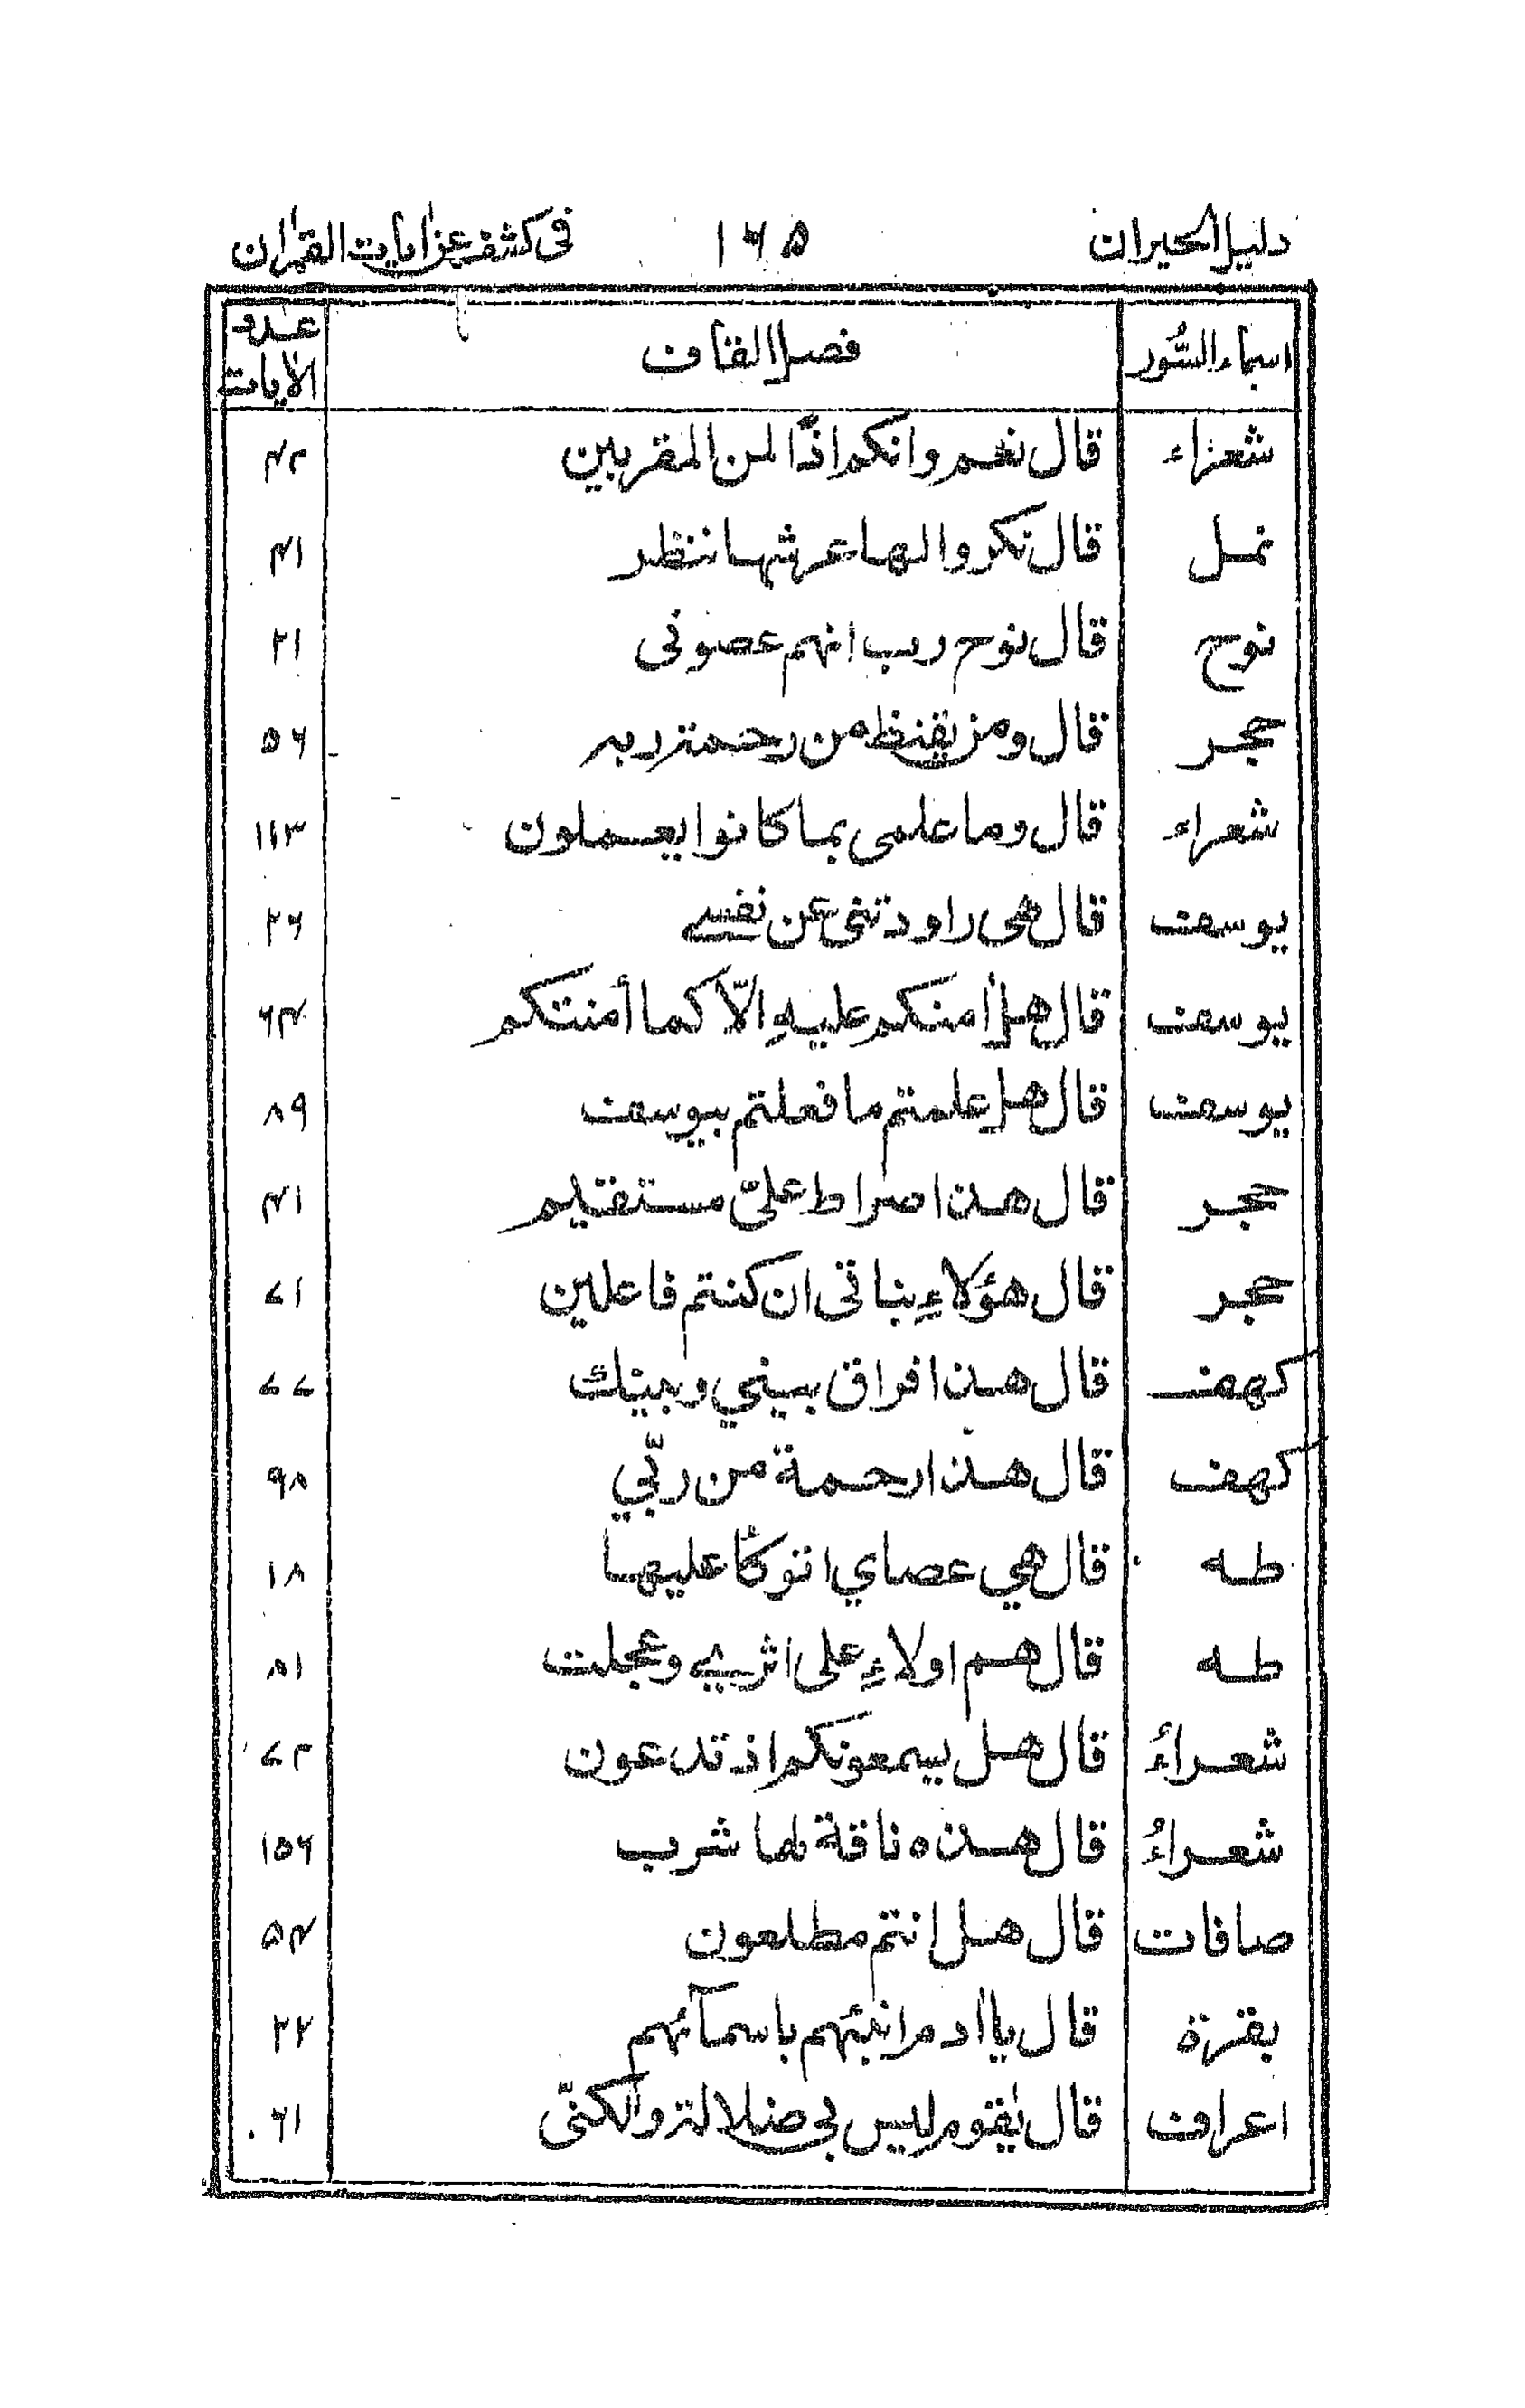 دليل الحيران ١٦٥ فى كشف عن ايات القران
اسماء السُّور فصل القاف عدد الايات
شعراء قال نعم وانكم اذًا لمن المقربين ٤٢
نمل قال نكروا لها عرشها ننظر ٤١
نوح قال نوح رب انهم عصونى ٢١
حجر قال ومن يقنط من رحمة ربه ٥٦
شعراء قال وما علمى بما كانوا يعملون ١١٣
يوسف قال هى راودتنى عن نفسى ٢٦
يوسف قال هل أمنكم عليهِ الّا كما أمنتكم ٦٤
يوسف قال هل علمتم ما فعلتم بيوسف ٨٩
حجر قال هذا صراط علىّ مستقيم ٤١
حجر قال هؤلاءِ بناتى ان كنتم فاعلين ٧١
كهف قال هذا فراق بيني وبينك ٧٧
كهف قال هذا رحمة من ربّي ٩٨
طه قال هي عصاي اتوكّأ عليها ١٨
طه قال هم اولاءِ على اثرى وعجلت ٨١
شعراءُ قال هل يسمعونكم اذ تدعون ٧٢
شعراءُ قال هذه ناقة لها شرب ١٥٦
صافات قال هل انتم مطلعون ٥٤
بقرة قال ياأدم انبئهم باسمآئهم ٣٢
اعراف قال يٰقوم ليس بى ضلالة ولٰكنّى ٦١